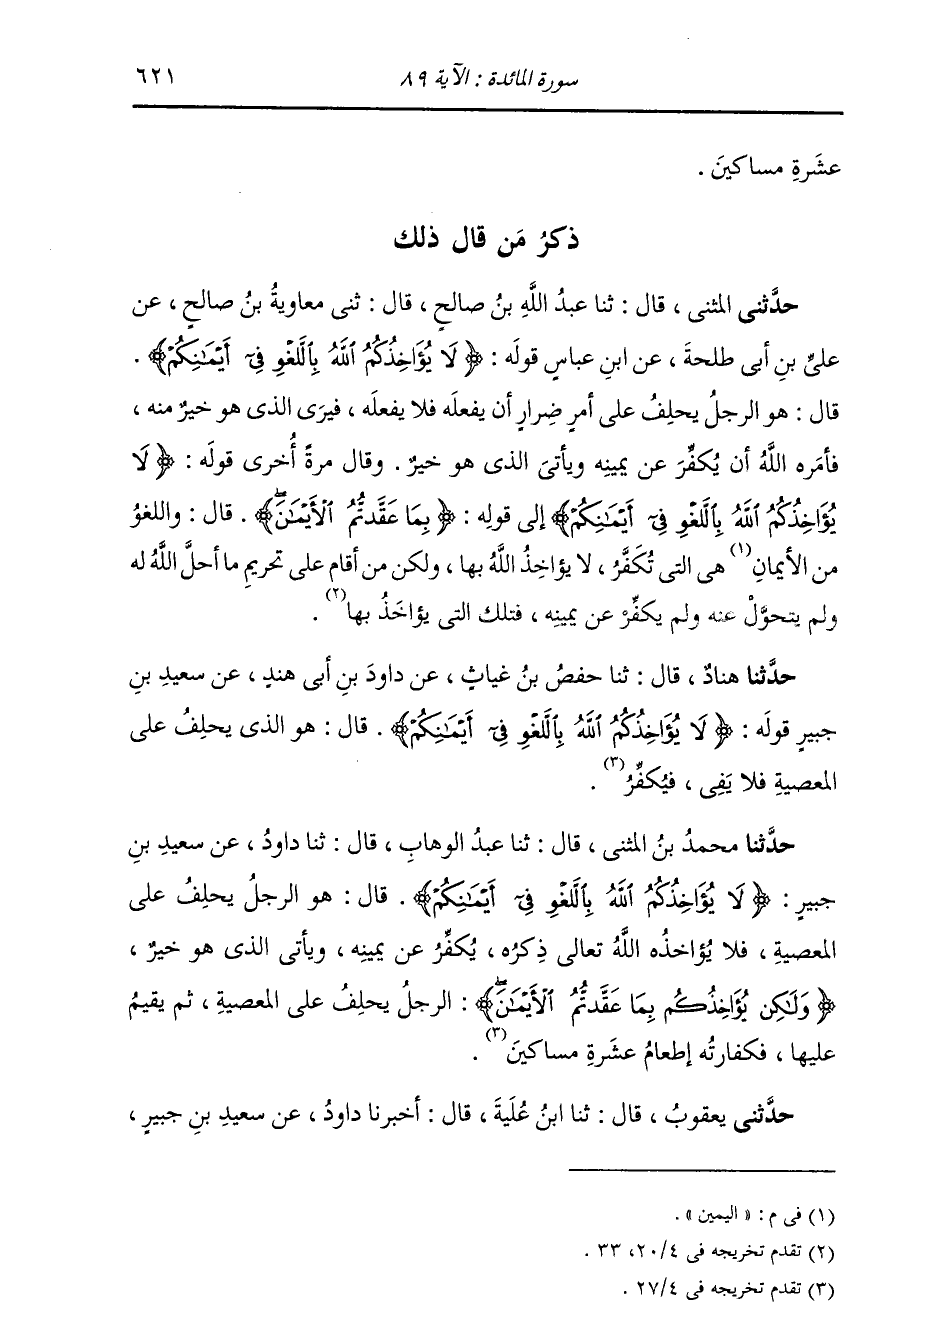 سورة المائدة : الآية ٨٩
٦٢١
عشَرةِ مساكينَ .
ذكرُ مَن قال ذلك
حدَّثنى المثنى ، قال : ثنا عبدُ اللَّهِ بنُ صالحٍ ، قال : ثنى معاويةُ بنُ صالحٍ ، عن
علىِّ بنِ أبى طلحةَ ، عن ابنِ عباسٍ قولَه : ﴿ لَا يُؤَاخِذُكُمُ ٱللَّهُ بِٱللَّغْوِ فِىٓ أَيْمَٰنِكُمْ﴾ .
قال : هو الرجلُ يحلِفُ على أمرِ ضِرارٍ أن يفعلَه فلا يفعلَه ، فيرَى الذى هو خيرٌ منه ،
فأمَره اللَّهُ أن يُكفِّرَ عن يمينِه ويأتىَ الذى هو خيرٌ . وقال مرةً أُخرى قولَه : ﴿ لَا
يُؤَاخِذُكُمُ ٱللَّهُ بِٱللَّغْوِ فِىٓ أَيْمَٰنِكُمْ﴾ إلى قولِه : ﴿ بِمَا عَقَّدتُّمُ ٱلْأَيْمَٰنَۖ﴾ . قال : واللغوُ
من الأيمانِ(١) هى التى تُكَفَّرُ ، لا يؤاخِذُ اللَّهُ بها ، ولكن من أقام على تحريمِ ما أحلَّ اللَّهُ له
ولم يتحوَّلْ عنه ولم يكفِّرْ عن يمينِه ، فتلك التى يؤاخَذُ بها(٢) .
حدَّثنا هنادٌ ، قال : ثنا حفصُ بنُ غياثٍ ، عن داودَ بنِ أبى هندٍ ، عن سعيدِ بنِ
جبيرٍ قولَه : ﴿ لَا يُؤَاخِذُكُمُ ٱللَّهُ بِٱللَّغْوِ فِىٓ أَيْمَٰنِكُمْ﴾ . قال : هو الذى يحلِفُ على
المعصيةِ فلا يَفِى ، فيُكفِّرُ(٣) .
حدَّثنا محمدُ بنُ المثنى ، قال : ثنا عبدُ الوهابِ ، قال : ثنا داودُ ، عن سعيدِ بنِ
جبيرٍ : ﴿ لَا يُؤَاخِذُكُمُ ٱللَّهُ بِٱللَّغْوِ فِىٓ أَيْمَٰنِكُمْ﴾ . قال : هو الرجلُ يحلِفُ على
المعصيةِ ، فلا يُؤاخذُه اللَّهُ تعالى ذِكرُه ، يُكفِّرُ عن يمينِه ، ويأتى الذى هو خيرٌ ،
﴿ وَلَٰكِن يُؤَاخِذُكُم بِمَا عَقَّدتُّمُ ٱلْأَيْمَٰنَۖ﴾ : الرجلُ يحلِفُ على المعصيةِ ، ثم يقيمُ
عليها ، فكفارتُه إطعامُ عشَرةِ مساكينَ(٣) .
حدَّثنى يعقوبُ ، قال : ثنا ابنُ عُلَيةَ ، قال : أخبرنا داودُ ، عن سعيدِ بنِ جبيرٍ ،
(١) فى م : « اليمين » .
(٢) تقدم تخريجه فى ٢٠/٤، ٣٣ .
(٣) تقدم تخريجه فى ٢٧/٤ .